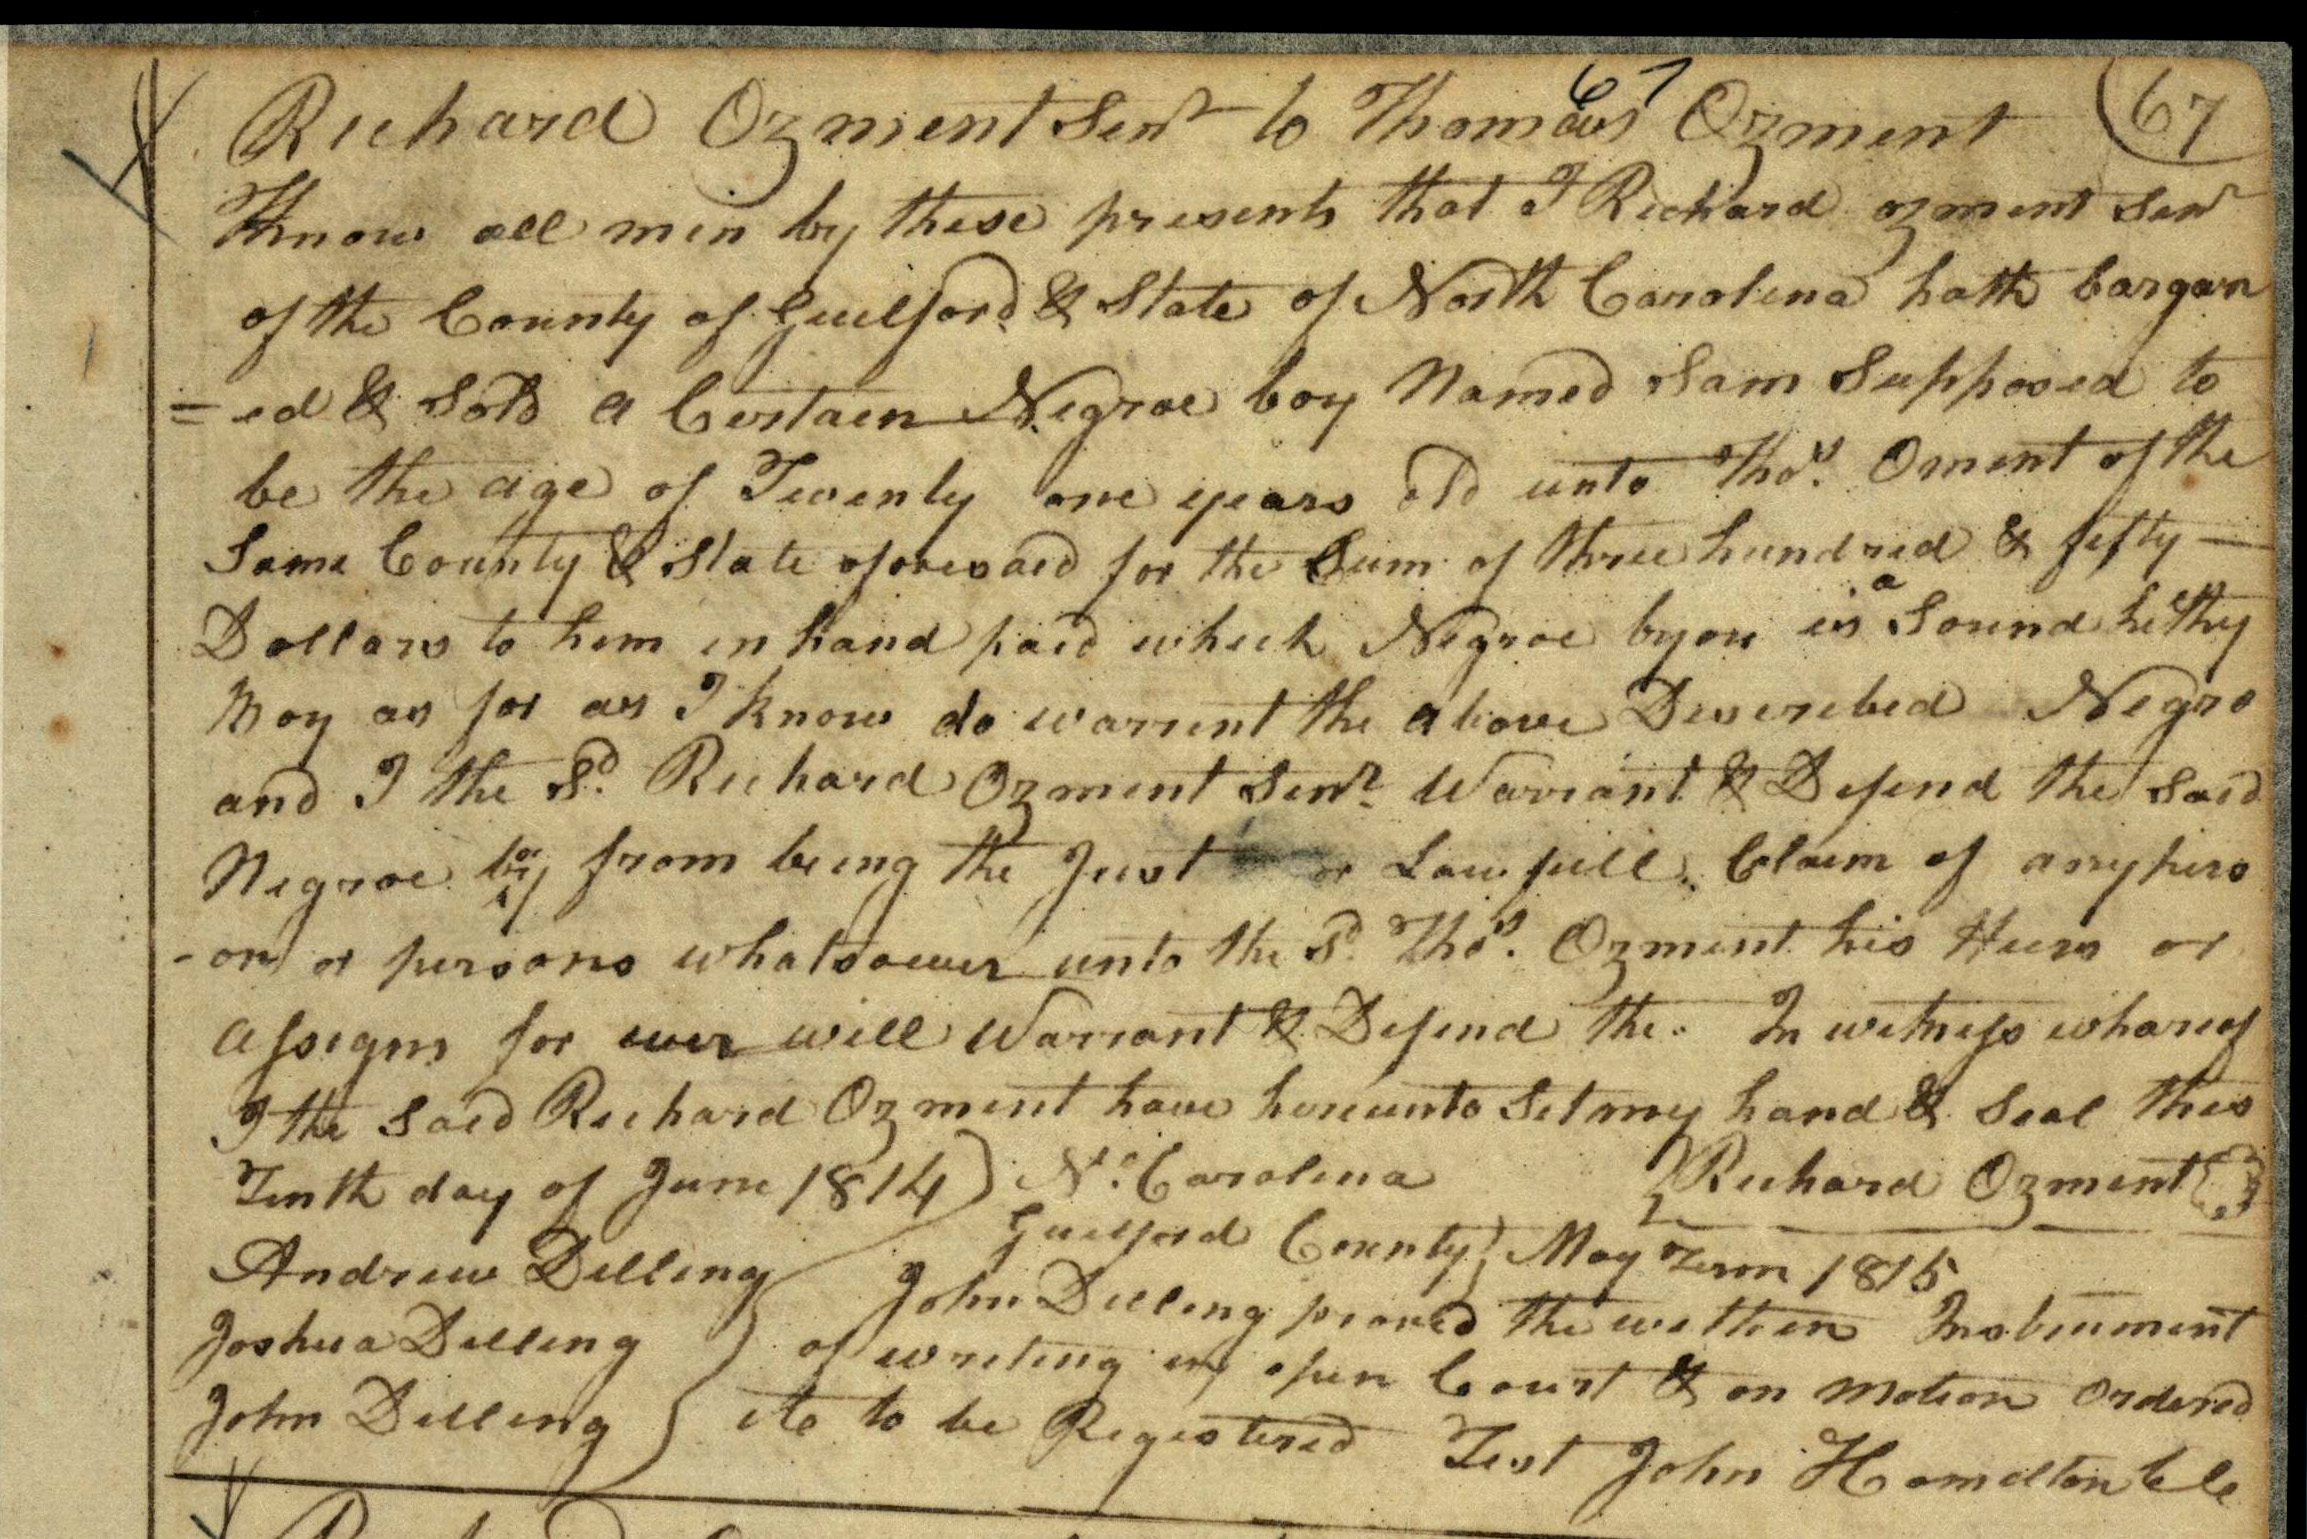 67
Richard Ozment Senr to Thomas Ozment (67
Know all men by these presents that I Richard ozment Senr
of the County of Guilford & State of North Carolina hath bargan
=ed & Sold a Certain Negroe boy Named Sam Supposed to
be the age of Twenty one years old unto Thos. Oment of the
Same County & State aforesaid for the Sum of three hundred & fifty —
Dollars to him in hand paid which Negroe byou is a Sound helthy
Boy as far as I know do warrent the above Described Negro
and I the Sd. Richard Ozment Senr. Warrant & Defend the said
Negroe boy from being the Just or Lawfull Claim of any pers
-on or persons whatsoever unto the Sd. Thos. Ozment his Heirs or
assigns for ever will Warrant & Defend the. In witness whareof
I the said Richard Ozment have hereunto Set my hand & Seal this
Tenth day of June 1814) No. Carolina Richard Ozment
Guilford County} May Term 1815
Andrew Dilling
John Dilling proved the within Instrument
Joshua Dilling
of writing in open Court & on motion ordered
John Dilling
ite to be Registered Test John Hamelton Cle